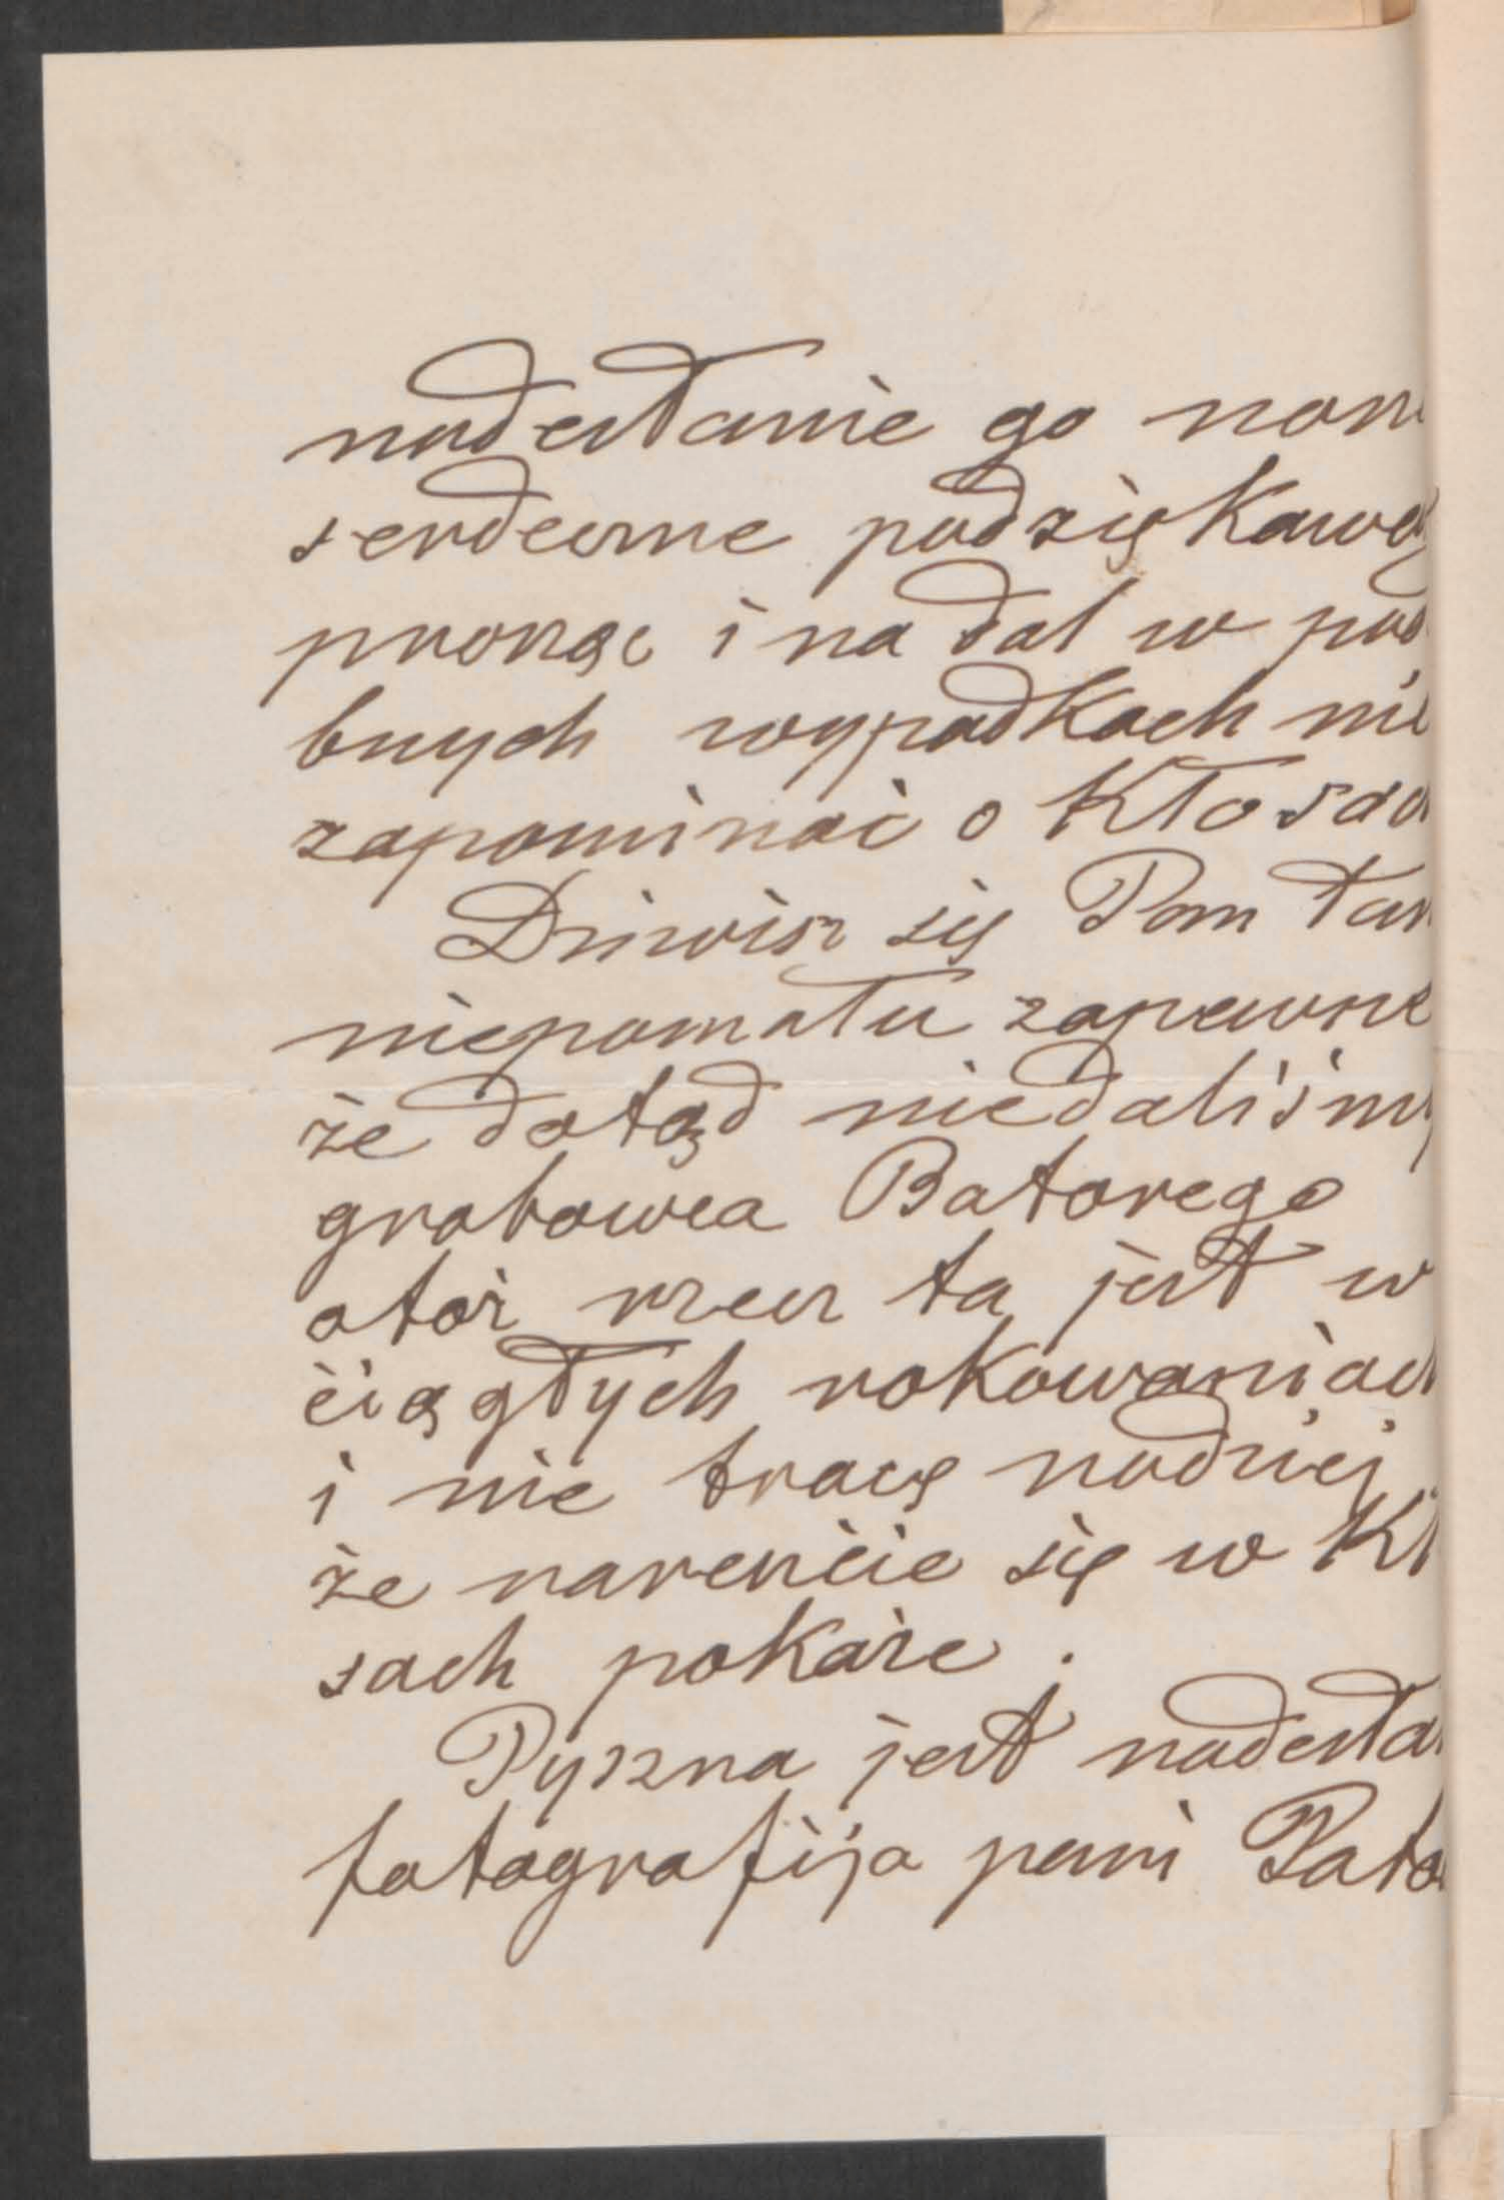 nadesłanie go nam
serdeczne podziękowa
prosząc i na dal w pod
bnych wypadkach nie
zapominać o Kłosac
Dziwisz się Pan tam
niepomału zapewne
że dotąd niedaliśmy
grobowca Batorego
otóż rzecz ta jest w
ciągłych rokowaniach
i nie tracę nadziei
że nareszcie się w Kł
sach pokaże.
Pyszna jest nadesła
fotografija pani Poto